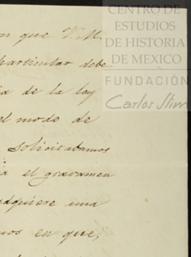 CENTRO DE
ESTUDIOS
DE HISTORIA
DE MEXICO
FUNDACIÓN
Carlos Slim
que V. M.
particular debe
de la ley
el modo de
solicitabamos
el gravamen
adquiere una
en que,